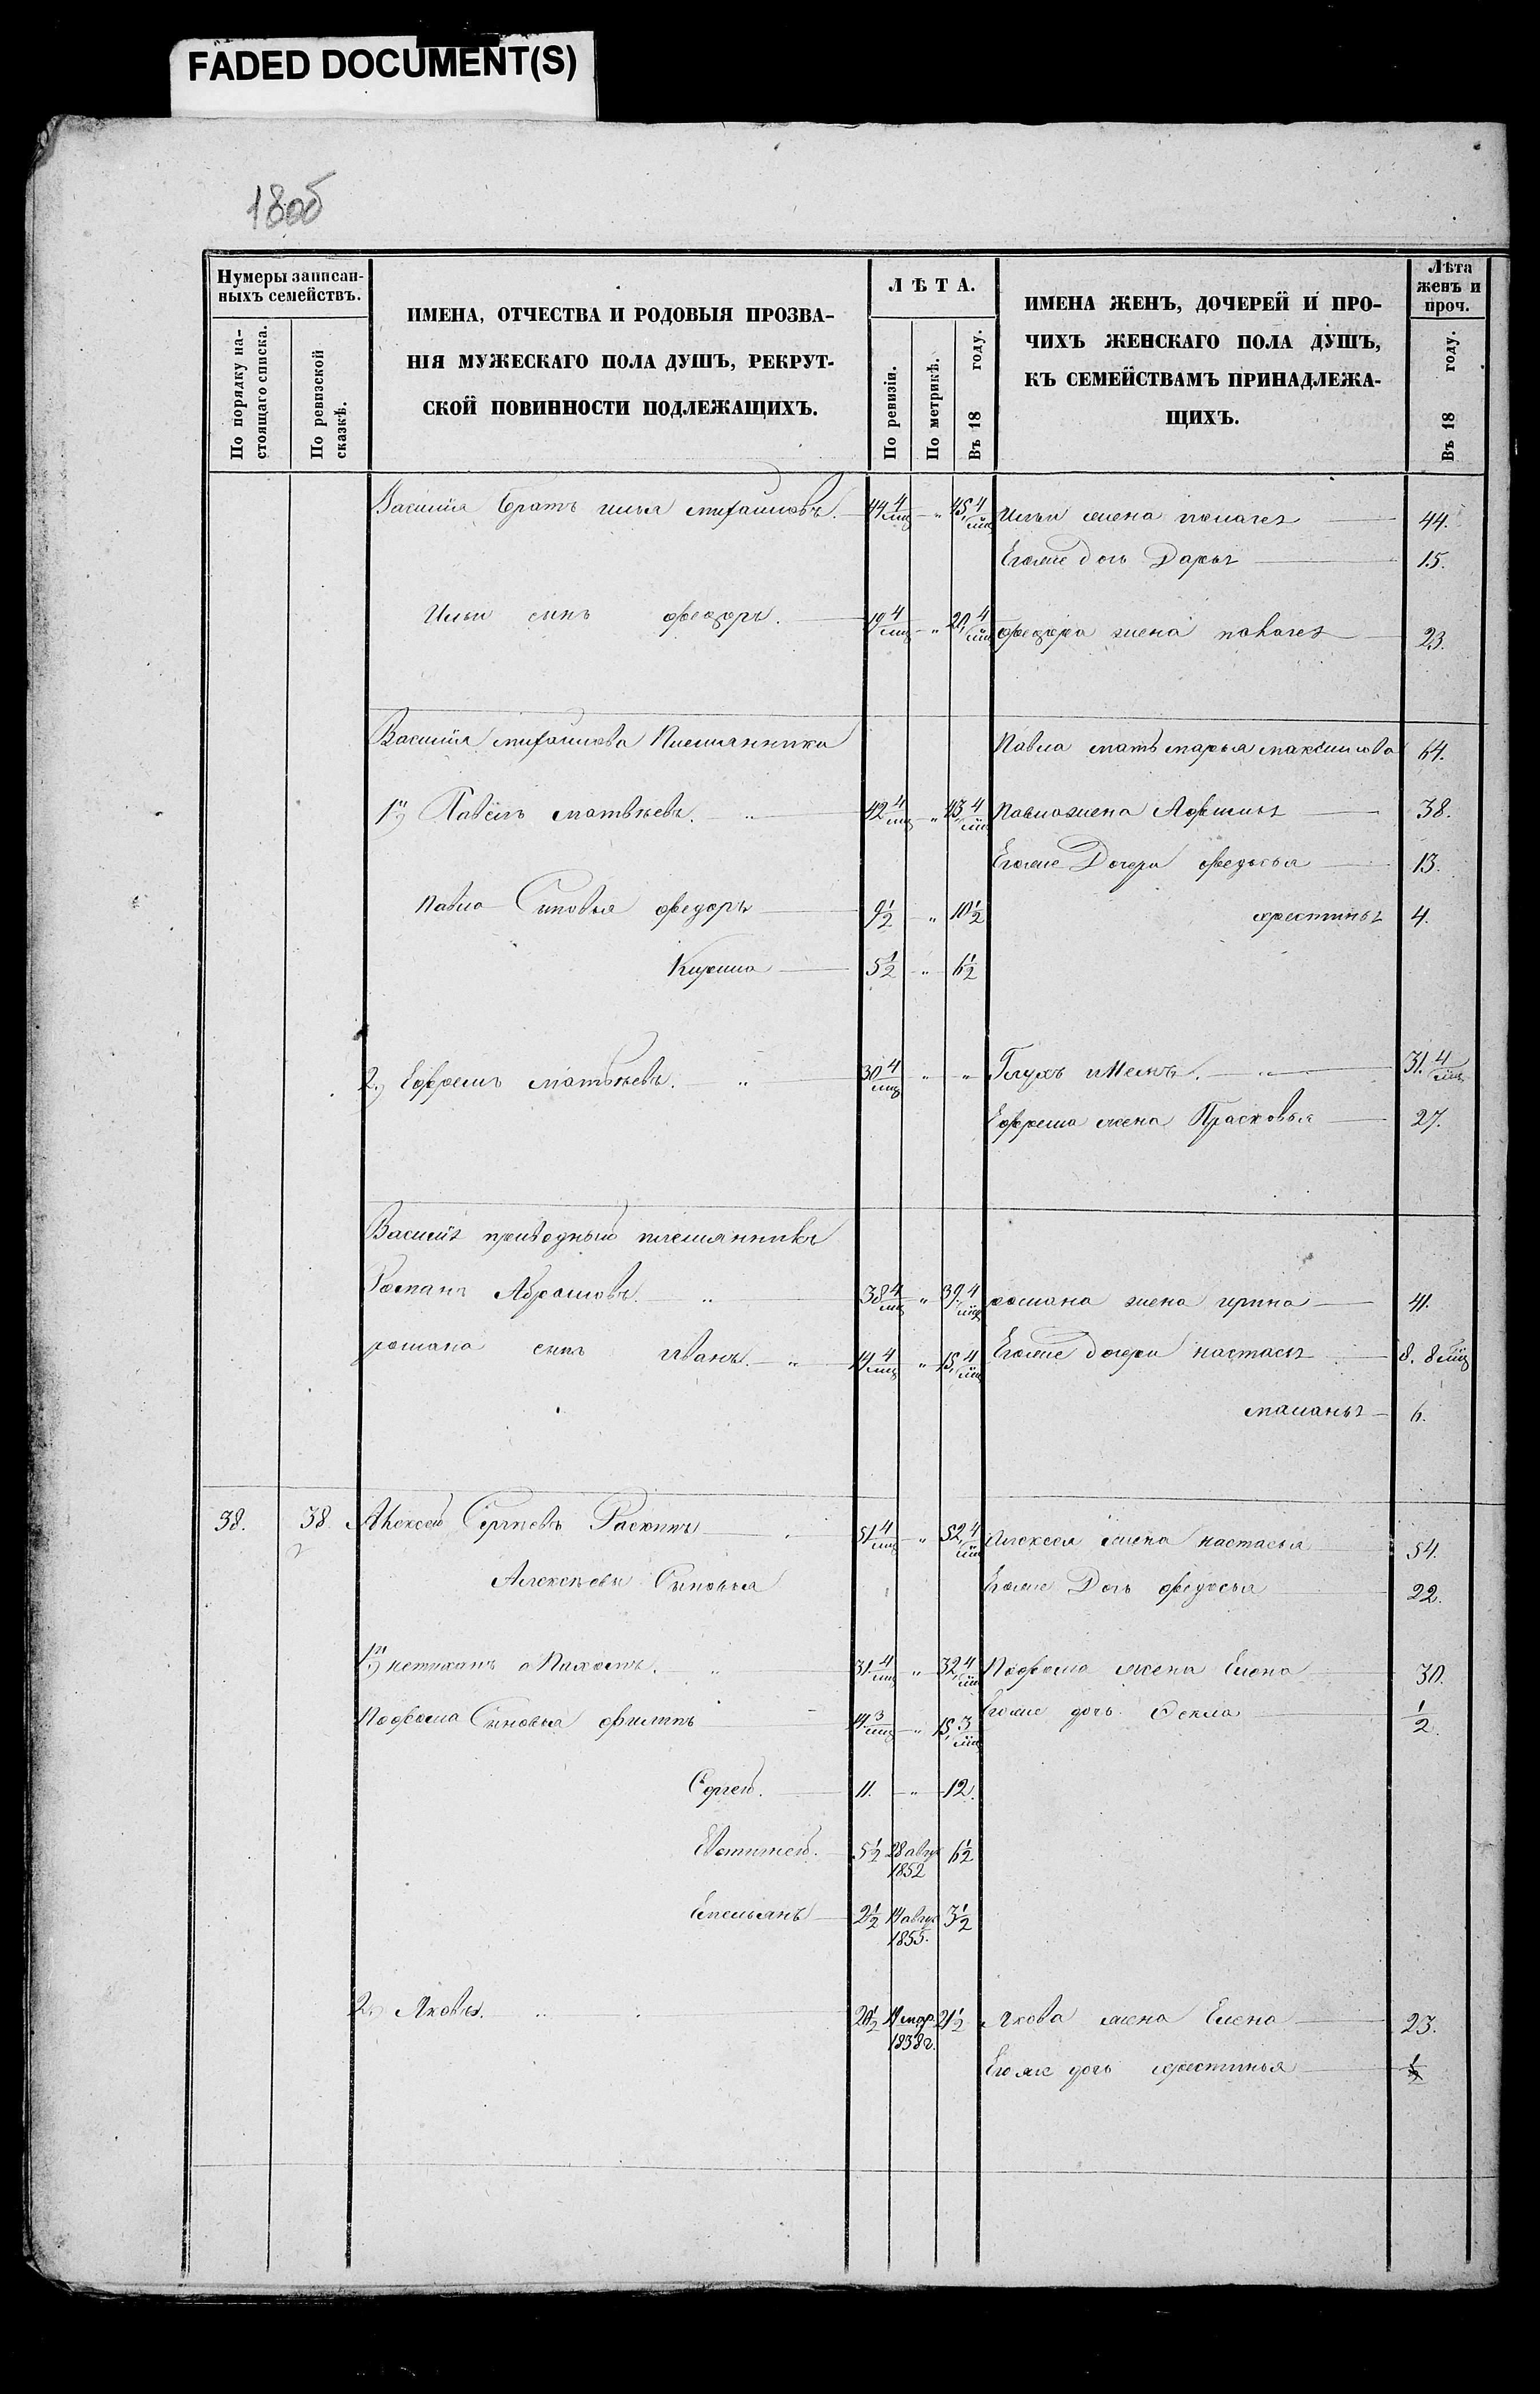 FADED DOCUMENT(S)
18об
Нумеры записан-
ныхъ семействъ.
По порядку на-
стоящаго списка.
По ревизской
сказкѣ.
ИМЕНА, ОТЧЕСТВА И РОДОВЫЯ ПРОЗВА-
НІЯ МУЖЕСКАГО ПОЛА ДУШЪ, РЕКРУТ-
СКОЙ ПОВИННОСТИ ПОДЛЕЖАЩИХЪ.
ЛѢТА.
По ревизіи.
По метрикѣ.
Въ 18 году.
ИМЕНА ЖЕНЪ, ДОЧЕРЕЙ И ПРО-
ЧИХЪ ЖЕНСКАГО ПОЛА ДУШЪ,
КЪ СЕМЕЙСТВАМЪ ПРИНАДЛЕЖА-
ЩИХЪ.
Лѣта
женъ и
проч.
Въ 18 году.
Василія братъ илья михаиловъ. 44 4/мц " 45 4/мц Ильи жена 44.
Егоже дочь Дарья 15.
Ильи сынъ федоръ. 19 4/мц " 20 4/мц федора жена 23.
Василія михаилова Племянники Павла мать марья максимова 64.
1й) Павелъ матвѣевъ. " 42 4/мц " 43 4/мц Павла жена 38.
Егоже Дочери федосья 13.
Павла Сыновья федоръ 9 1/2 " 10 1/2 хрестинья 4.
Кирила 5 1/2 " 6 1/2
2) Ефремъ матвѣевъ. " 30 4/мц " " Глухъ и Немъ. " 31. 4/мц
Ефрема жена Прасковья 27.
Василія племянникъ
Романъ Абрамовъ. " 38 4/мц " 39. 4/мц романа жена ирина 41.
романа сынъ иванъ. " 14 4/мц " 15 4/мц Егоже дочери настасья 8. 8 мц
маланья 6.
38. 38 Алексей Сергѣевъ 51 4/мц " 52 4/мц Алексея жена настасья 54.
Алексѣевы Сыновья Егоже Дочь федосья 22.
1й) 31. 4/мц " 32 4/мц жена Елена 30.
Сыновья филипъ 14 3/мц " 15 3/мц Егоже дочь Фекла 1/2.
Сергей. 11. " 12.
Евтифей. 5 1/2 28 авгу 1852 6 1/2
Емельянъ 2 1/2 14 авгу 1855. 3 1/2
2) Яковъ. " 20 1/2 мар. 1838 г. 21 1/2 Якова жена Елена 23.
Егоже дочь хрестинья 1/2